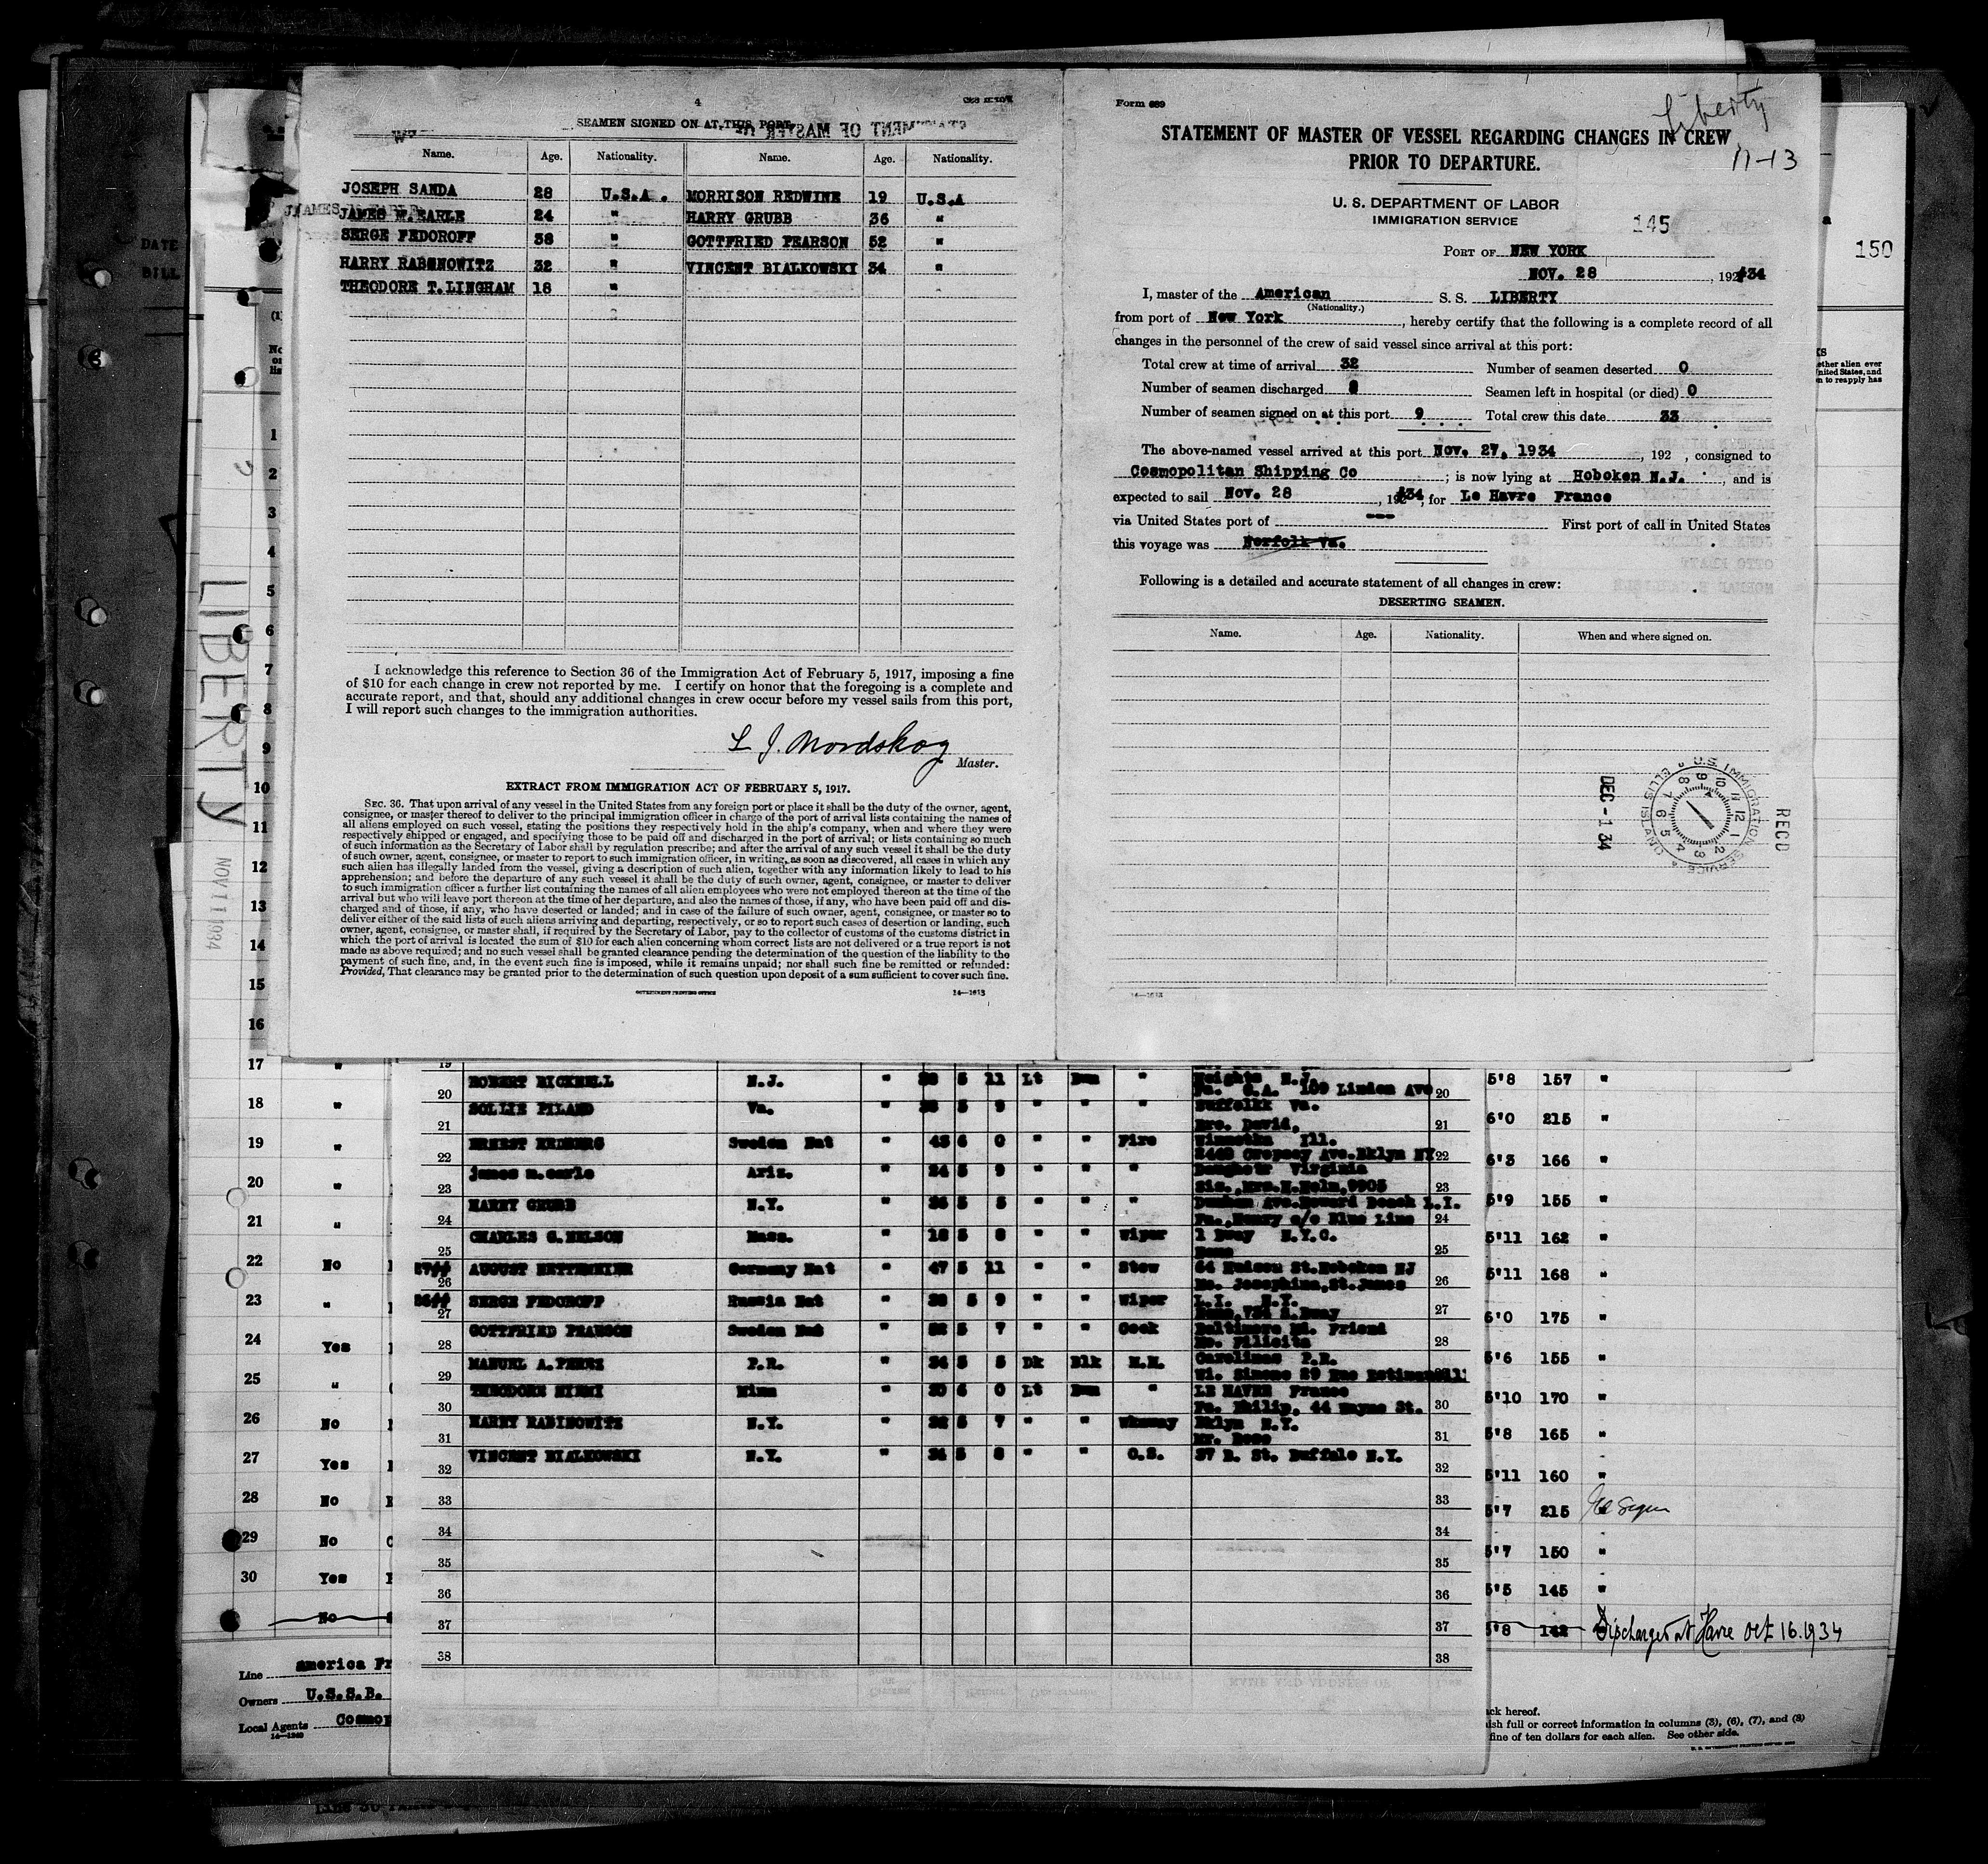 4
SEAMEN SIGNED ON AT THIS PORT
Name. Age. Nationality. Name. Age. Nationality.
JOSEPH SANDA 28 U.S.A. MORRISON REDWINE 19 U.S.A
JAMES W. EARLE 24 " HARRY GRUBB 36 "
SERGE FEDOROFF 38 " GOTTFRIED PEARSON 52 "
HARRY RABONOWITZ 32 " VINCENT BIALKOWSKI 34 "
THEODORE T.LINGHAM 18 "
I acknowledge this reference to Section 36 of the Immigration Act of February 5, 1917, imposing a fine
of $10 for each change in crew not reported by me. I certify on honor that the foregoing is a complete and
accurate report, and that, should any additional changes in crew occur before my vessel sails from this port,
I will report such changes to the immigration authorities.
L J. Nordskog
Master.
EXTRACT FROM IMMIGRATION ACT OF FEBRUARY 5, 1917.
SEC. 36. That upon arrival of any vessel in the United States from any foreign port or place it shall be the duty of the owner, agent,
consignee, or master thereof to deliver to the principal immigration officer in charge of the port of arrival lists containing the names of
all aliens employed on such vessel, stating the positions they respectively hold in the ship's company, when and where they were
respectively shipped or engaged, and specifying those to be paid off and discharged in the port of arrival; or lists containing so much
of such information as the Secretary of Labor shall by regulation prescribe; and after the arrival of any such vessel it shall be the duty
of such owner, agent, consignee, or master to report to such immigration officer, in writing, as soon as discovered, all cases in which any
such alien has illegally landed from the vessel, giving a description of such alien, together with any information likely to lead to his
apprehension; and before the departure of any such vessel it shall be the duty of such owner, agent, consignee, or master to deliver
to such immigration officer a further list containing the names of all alien employees who were not employed thereon at the time of the
arrival but who will leave port thereon at the time of her departure, and also the names of those, if any, who have been paid off and dis-
charged and of those, if any, who have deserted or landed; and in case of the failure of such owner, agent, consignee, or master so to
deliver either of the said lists of such aliens arriving and departing, respectively, or so to report such cases of desertion or landing, such
owner, agent, consignee, or master shall, if required by the Secretary of Labor, pay to the collector of customs of the customs district in
which the port of arrival is located the sum of $10 for each alien concerning whom correct lists are not delivered or a true report is not
made as above required; and no such vessel shall be granted clearance pending the determination of the question of the liability to the
payment of such fine, and, in the event such fine is imposed, while it remains unpaid; nor shall such fine be remitted or refunded:
Provided, That clearance may be granted prior to the determination of such question upon deposit of a sum sufficient to cover such fine.
GOVERNMENT PRINTING OFFICE 14—1613
Form 689
Liberty
11-13
STATEMENT OF MASTER OF VESSEL REGARDING CHANGES IN CREW
PRIOR TO DEPARTURE.
U. S. DEPARTMENT OF LABOR
IMMIGRATION SERVICE
145
PORT OF NEW YORK
NOV. 28, 192 34
I, master of the American S. S. LIBERTY
(Nationality.)
from port of New York, hereby certify that the following is a complete record of all
changes in the personnel of the crew of said vessel since arrival at this port:
Total crew at time of arrival 32 Number of seamen deserted 0
Number of seamen discharged 8 Seamen left in hospital (or died) 0
Number of seamen signed on at this port 9 Total crew this date 33
The above-named vessel arrived at this port Nov. 27, 1934, 192 , consigned to
Cosmopolitan Shipping Co; is now lying at Hoboken N.J., and is
expected to sail Nov. 28, 192 34, for Le Havre France
via United States port of --- First port of call in United States
this voyage was Norfolk Va.
Following is a detailed and accurate statement of all changes in crew:
DESERTING SEAMEN.
Name. Age. Nationality. When and where signed on.
U.S. IMMIGRATION SERVICE ELLIS ISLAND
DEC -1 34
REC'D
14—1613
DATE
BILL
150
LIBERTY
NOV 11 1934
1
2
3
4
5
6
7
8
9
10
11
12
13
14
15
16
17 "
18 "
19 "
20 "
21 "
22 No
23 "
24 Yes
25 "
26 No
27 Yes
28 No
29 No
30 Yes
No
20 ROBERT BICKNELL N.J. " 5 11 Lt Bwn " Heights N.J. 20
21 SOLLIE PILAND Va. " 5 9 " " " Suffolkk Va. 21
22 ERNEST HEDBERG Sweden Nat " 43 6 0 " " Fire Winnetka Ill. 22
23 james m.earle Ariz. " 24 5 9 " " " Virginia 23
24 HARRY GRUBB N.Y. " 36 5 5 " " " 24
25 CHARLES G.NELSON Mass. " 18 5 8 " " Wiper 1 Bway N.Y.C. 25
26 AUGUST HETTEMEIER Germany Nat " 47 5 11 " " Stew 64 Hudson St.Hoboken NJ 26
27 SERGE FEDOROFF Russia Nat " 38 5 9 " " Wiper L.I. N.Y. 27
28 GOTTFRIED PEARSON Sweden Nat " 52 5 7 " " Cook Baltimore Md. Friend 28
29 MANUEL A.PEREZ P.R. " 34 5 5 Dk Blk M.M. Carolinas P.R.
30 THEODORE Minn " 30 6 0 Lt Bwn " LE HAVRE France 30
31 HARRY RABINOWITZ N.Y. " 32 5 7 " " Wkaway Bklyn N.Y. 31
32 VINCENT BIALKOWSKI N.Y. " 34 5 8 " " O.S. 37 B. St. Buffalo N.Y. 32
33 33
34 34
35 35
36 36
37 37
38 38
5'8 157 "
6'0 215 "
6'3 166 "
5'9 155 "
5'11 162 "
5'11 168 "
6'0 175 "
5'6 155 "
5'10 170 "
5'8 165 "
5'11 160 "
5'7 215
5'7 150 "
5'5 145 "
5'8 142 Discharged at Havre Oct 16.1934
Line america Fr
Owners U.S.S.B.
Local Agents Cosmop
14—1240
ack hereof.
ish full or correct information in columns (3), (6), (7), and (8)
fine of ten dollars for each alien. See other side.